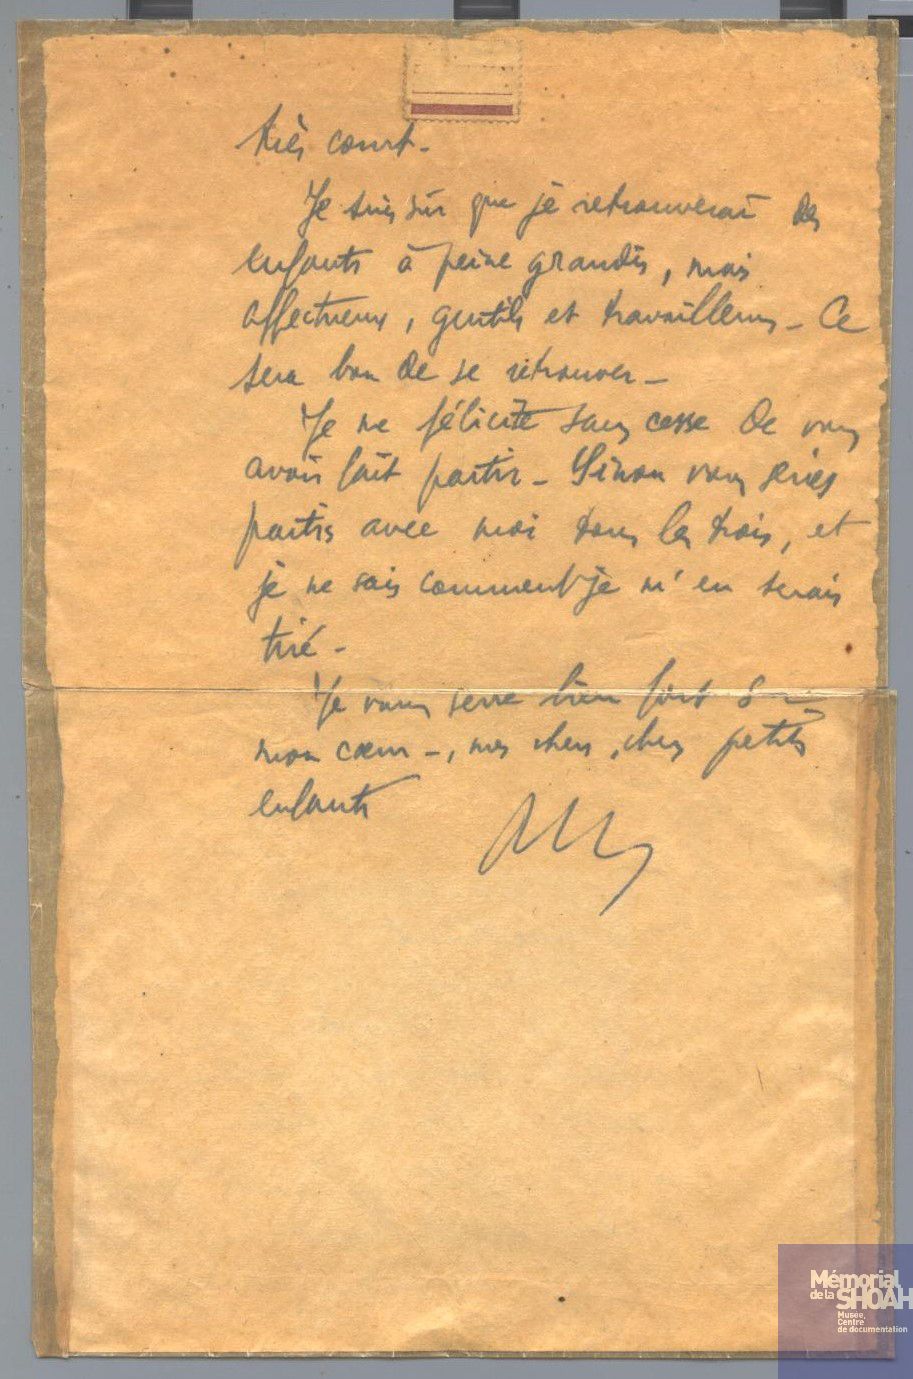 très court -
Je suis sûr que je retrouverai des
enfants à peine grandis, mais
affectueux, gentils et travailleurs - Ce
sera bon de se retrouver -
Je me félicite sans cesse de vous
avoir fait partir - Sinon vous seriez
partis avec moi tous les trois, et
je ne sais comment je m'en serais
tiré -
Je vous serre bien fort sur
mon cœur -, mes chers, chers petits
enfants
Mémorial
de la SHOAH
Musée,
Centre
de documentation